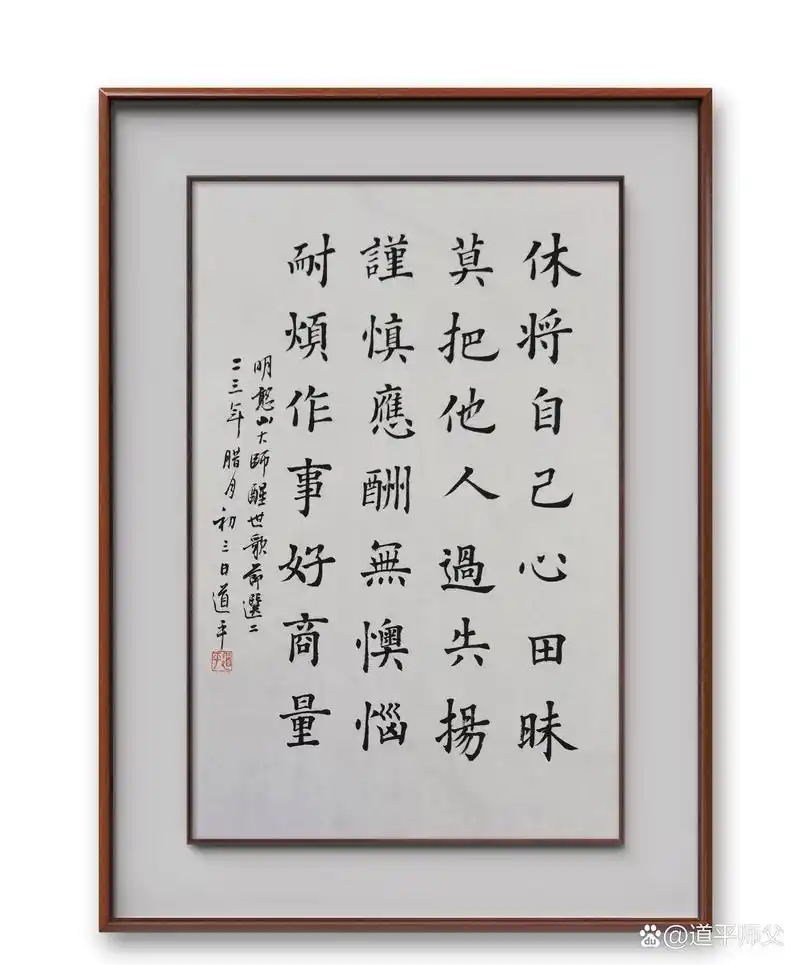 休将自己心田昧
莫把他人過失揚
謹慎應酬無懊惱
耐煩作事好商量
明憨山大師醒世歌前選二
二三年腊月初三日道平
道平
Bai du @道平师父